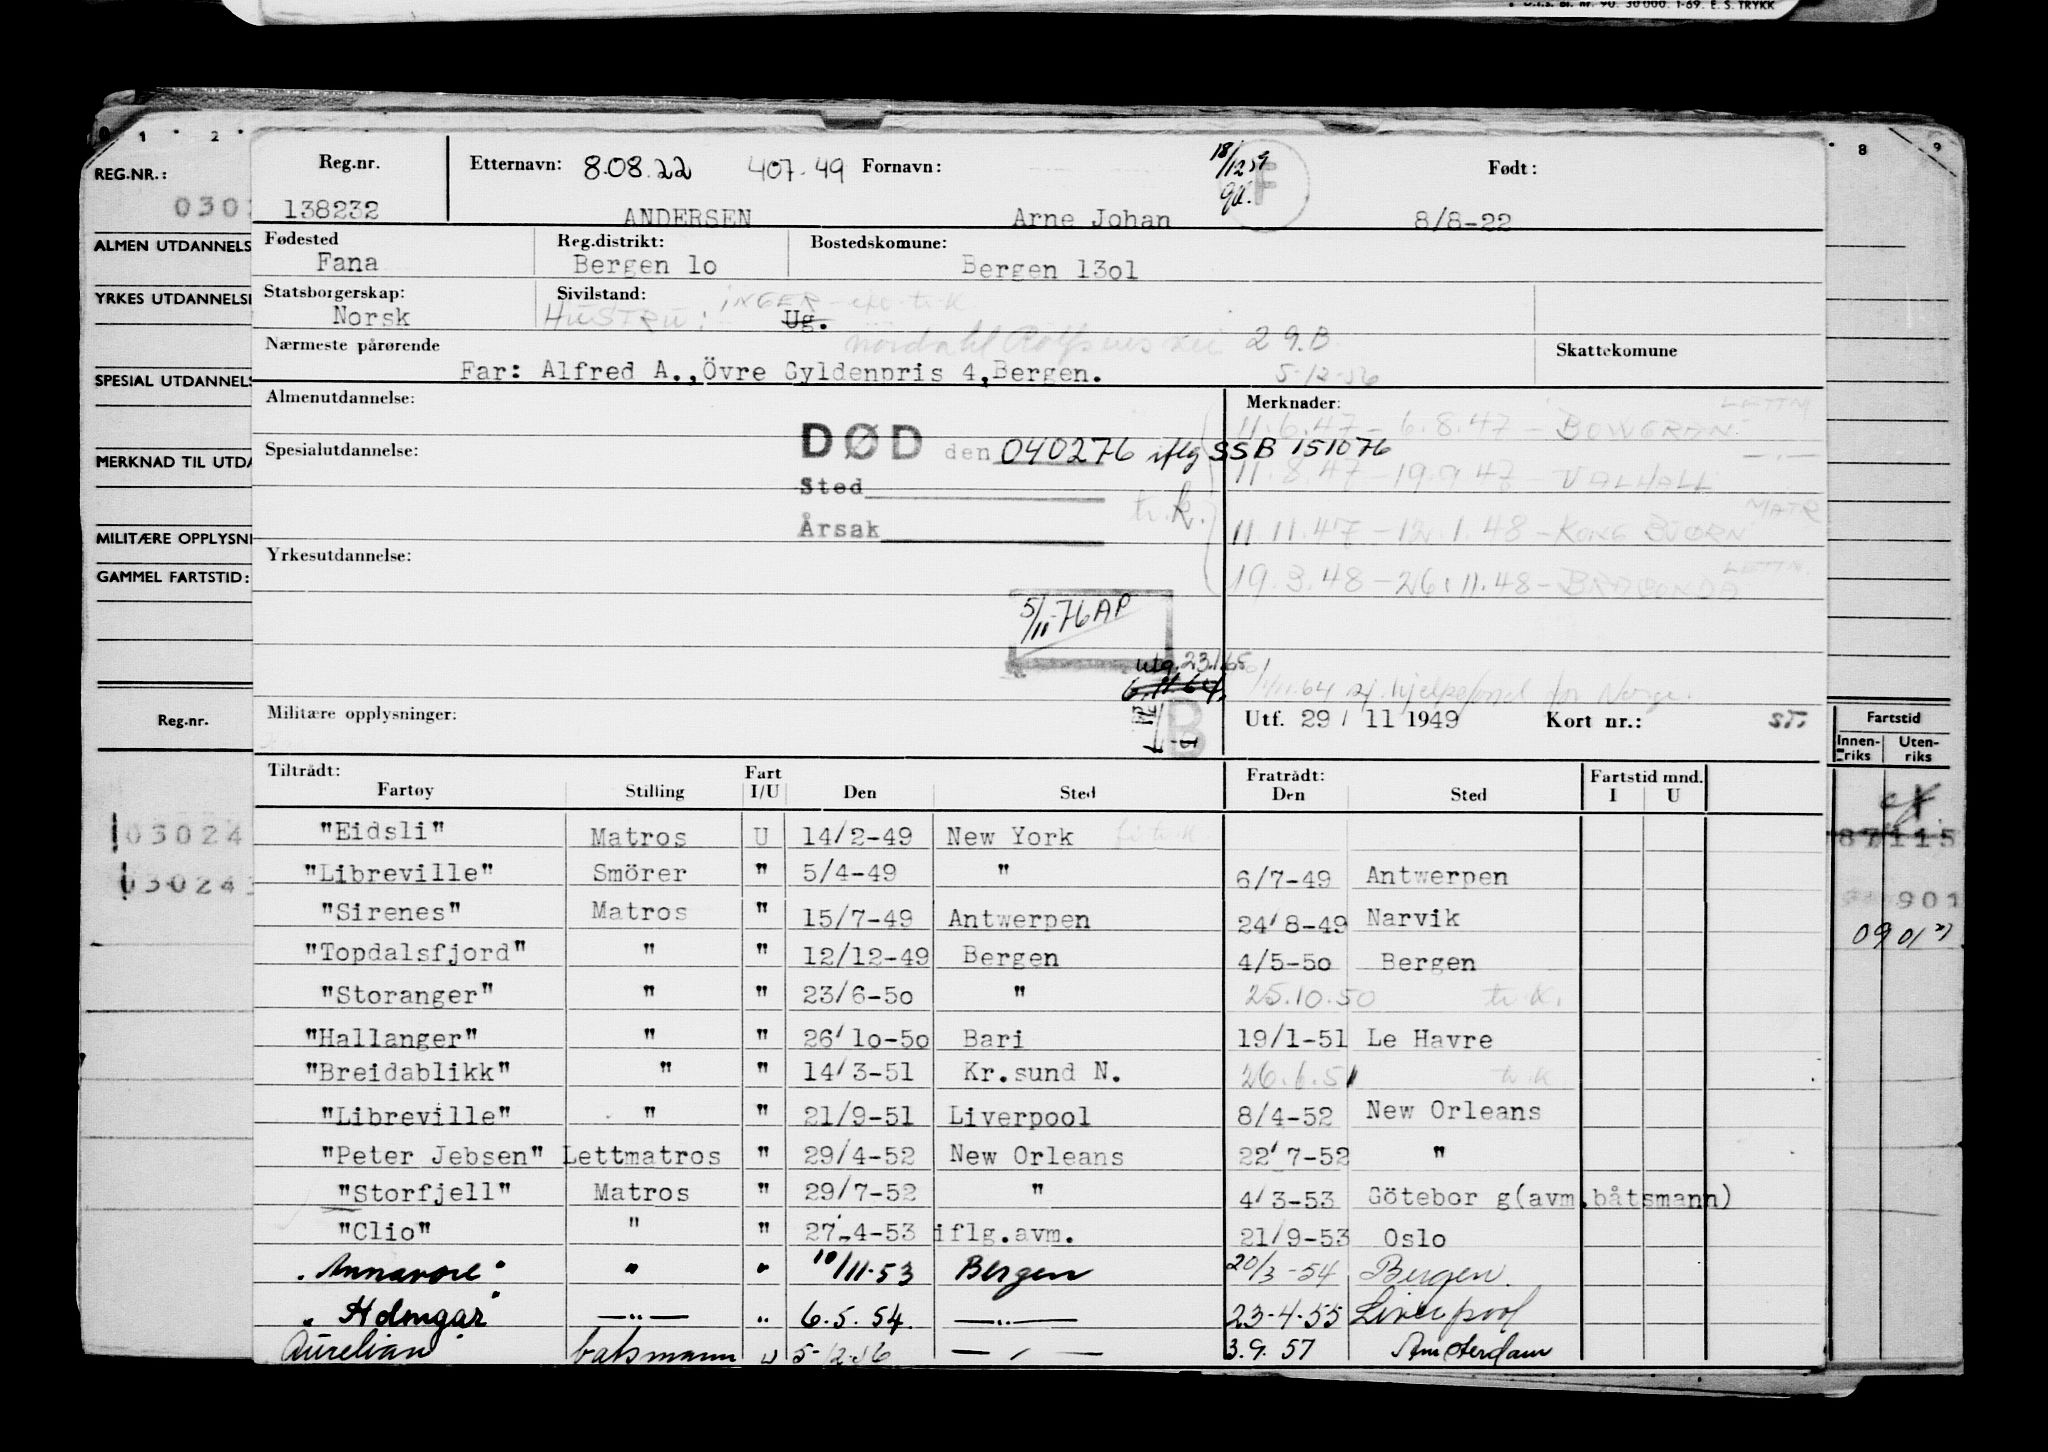 D.T.S. Bl. nr. 90. 30 000. 1-69. E. S. TRYKK
0 1 2 8 9
REG.NR.:
ALMEN UTDANNELS
YRKES UTDANNELSE
SPESIAL UTDANNELS
MERKNAD TIL UTDA
MILITÆRE OPPLYSNI
GAMMEL FARTSTID:
Reg.nr.
03024
Fartstid
Innen-riks Uten-riks
87115
901
0901
Reg.nr. Etternavn: 8.08.22 407-49 Fornavn: 18/12 59 F Født:
138232 ANDERSEN Arne Johan 8/8-22
Fødested Reg.distrikt: Bostedskomune:
Fana Bergen 1o Bergen 13o1
Statsborgerskap: Sivilstand: INGER
Norsk HUSTRU: Ug.
Nærmeste pårørende 29.B Skattekomune
Far: Alfred A.,Övre Gyldenpris 4,Bergen. 5-12-56
Almenutdannelse: Merknader: LETTM
11.6.47 - 6.8.47 - BOWGRAN
DØD den 040276 iflg SSB 151076
Spesialutdannelse:
11.8.47 - 19.9.47 VALHALL
Sted
tr.k. MATR
Årsak 11 11.47 - 12.1.48 - KONG BJØRN
Yrkesutdannelse: LETTM.
19.3.48 - 26.11.48 -
5/11-76 AP
utg. 23.1.65
6.11.64 sj. hjelpefond for Norge.
Militære opplysninger: B Utf. 29 / 11 1949 Kort nr.: ST.
Tiltrådt: Fart Fratrådt: Fartstid mnd.
Fartøy Stilling I/U Den Sted Den Sted I U
"Eidsli" Matros U 14/2-49 New York
"Libreville" Smörer " 5/4-49 " 6/7-49 Antwerpen
"Sirenes" Matros " 15/7-49 Antwerpen 24/8-49 Narvik
"Topdalsfjord" " " 12/12-49 Bergen 4/5-5o Bergen
"Storanger" " " 23/6-5o " 25.10.50 tr.K.
"Hallanger" " " 26/1o-5o Bari 19/1-51 Le Havre
"Breidablikk" " " 14/3-51 Kr.sund N. 26.6.51 tr.K
"Libreville" " " 21/9-51 Liverpool 8/4-52 New Orleans
"Peter Jebsen" Lettmatros " 29/4-52 New Orleans 22/7-52 "
"Storfjell" Matros " 29/7-52 " 4/3-53 Götebor g(avm.båtsmann)
"Clio" " " 27.-4-53 iflg.avm. 21/9-53 Oslo
"Annavore" " " 10/11.53 Bergen 20/3-54 Bergen.
"Holmgar" —"— " 6.5.54. —"— 23-4.55 Liverpool
Aurelian batsmann U 5-12-56 —"— 3.9.57 Amsterdam